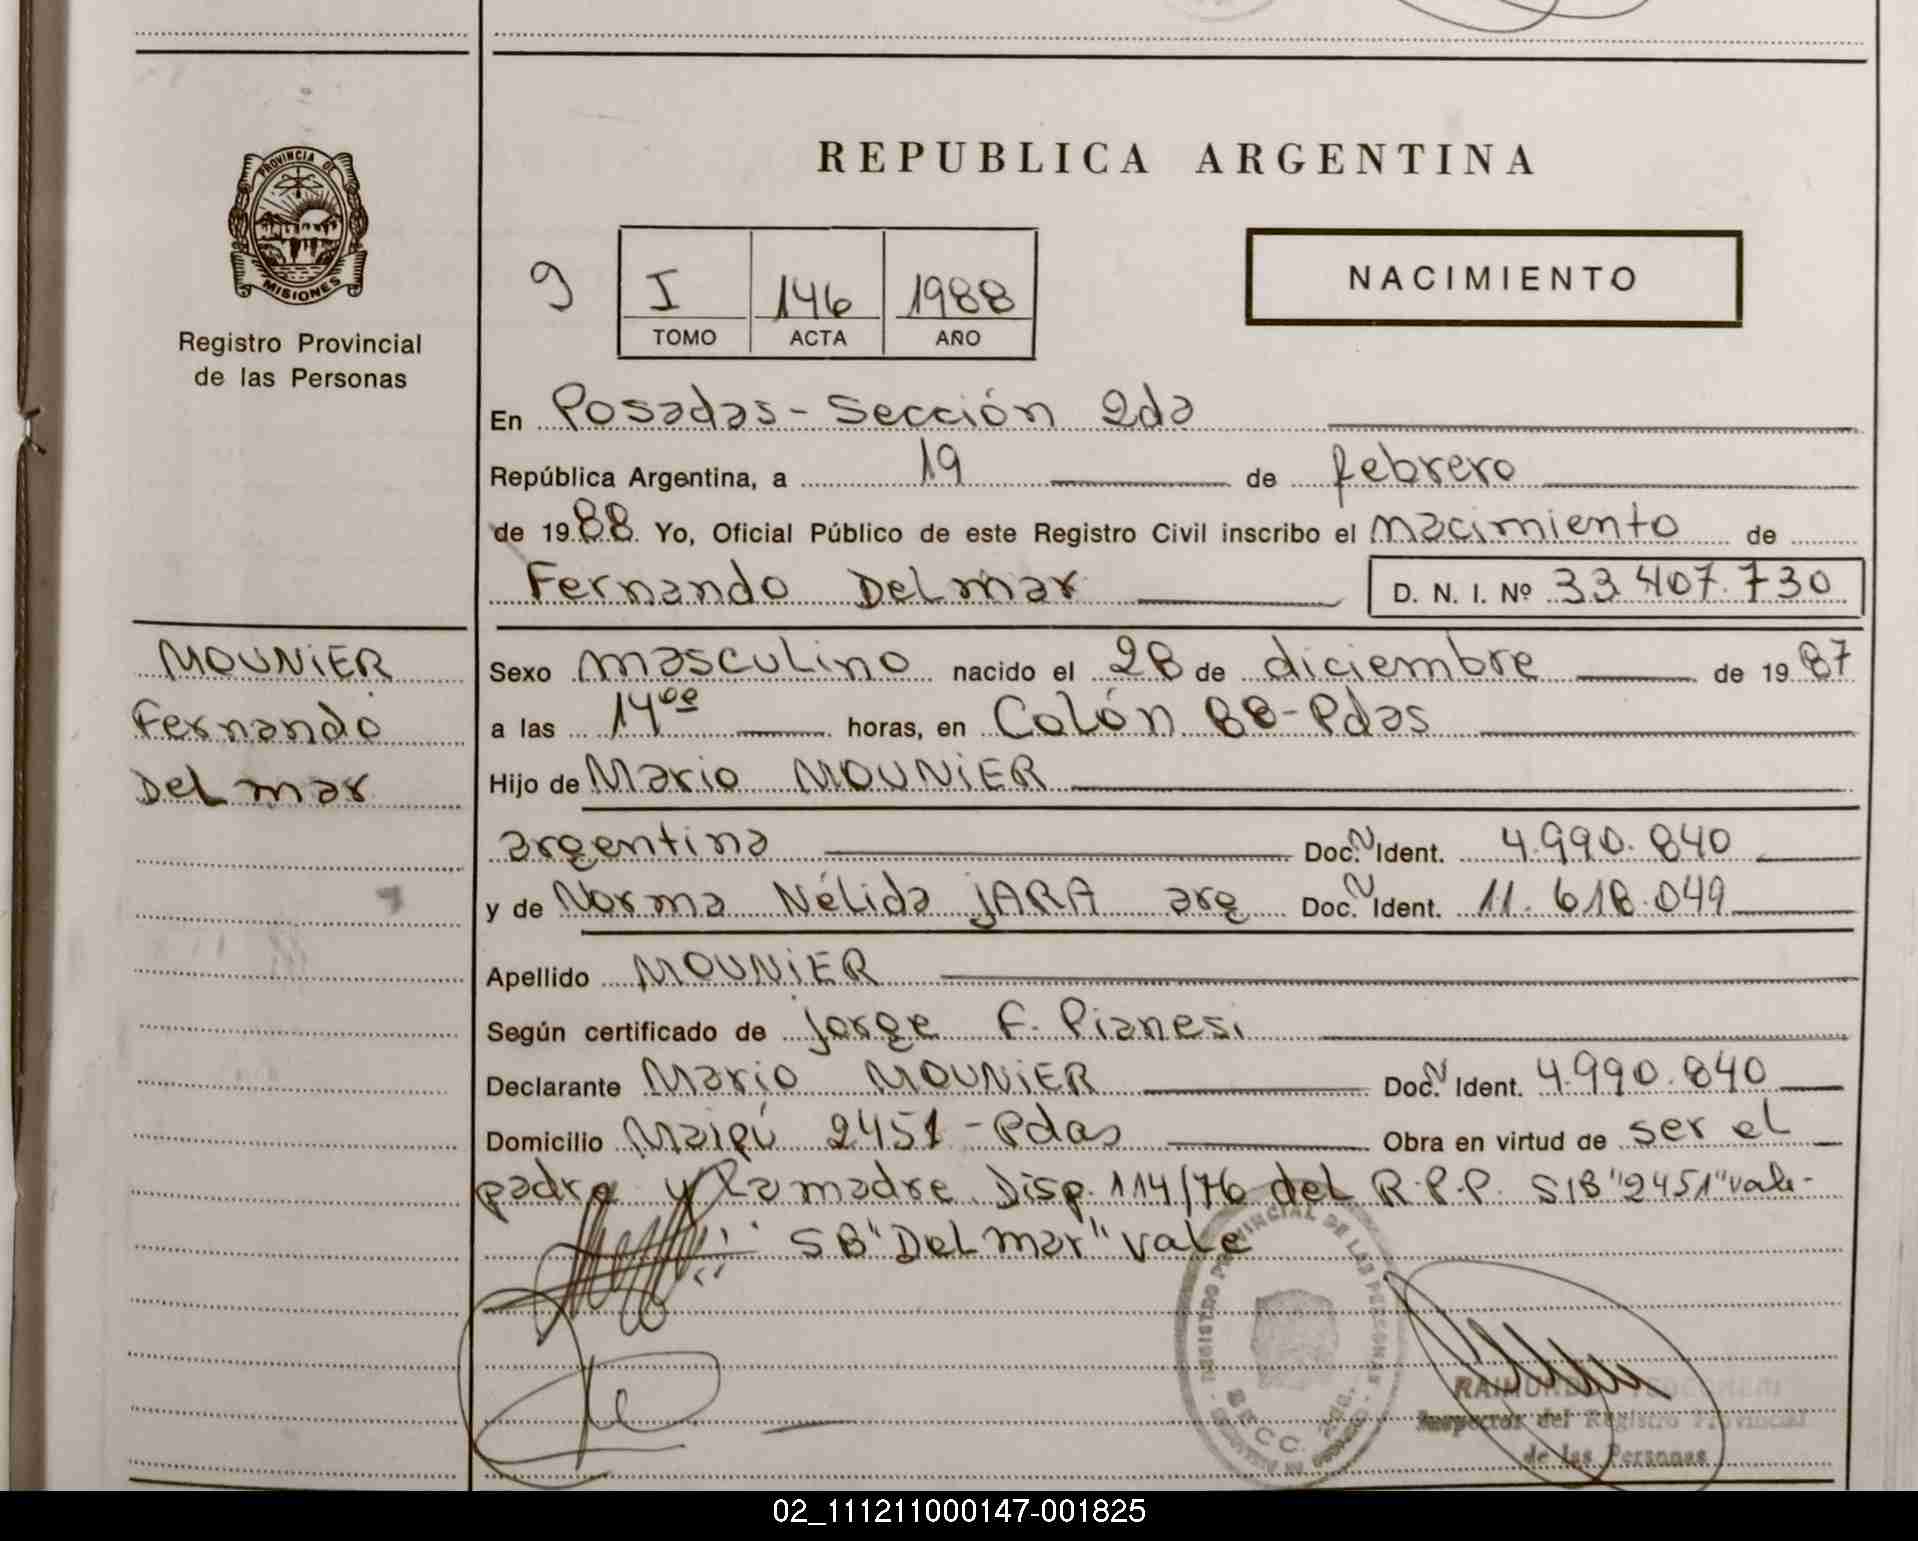 REPUBLICA ARGENTINA
PROVINCIA DE
MISIONES
Registro Provincial
de las Personas
9 I 146 1988
TOMO ACTA AÑO
NACIMIENTO
En Posadas - Sección 2da
República Argentina, a 19 de febrero
de 1988 Yo, Oficial Público de este Registro Civil inscribo el nacimiento de
Fernando Del mar D. N. I. Nº 33.407.730
MOUNiER
Fernando
Del mar
Sexo masculino nacido el 28 de diciembre de 1987
a las 14ºº horas, en Colón 88-Pdas
Hijo de Mario MOUNiER
argentina Doc. N Ident. 4.990.840
y de Norma Nélida jARA arg Doc. N Ident. 11.618.049
Apellido MOUNiER
Según certificado de jorge F. Pianesi
Declarante Mario MOUNiER Doc. N Ident. 4.990.840
Domicilio Maipú 2451 - Pdas Obra en virtud de ser el
padre y la madre. Disp. 114/76 del R.P.P. S/B "2451" vale-
SB "Del mar" vale
REGISTRO PROVINCIAL DE LAS PERSONAS
SECC. 2da.
RAIMUNDO
Inspector del Registro Provincial
de las Personas
02_111211000147-001825